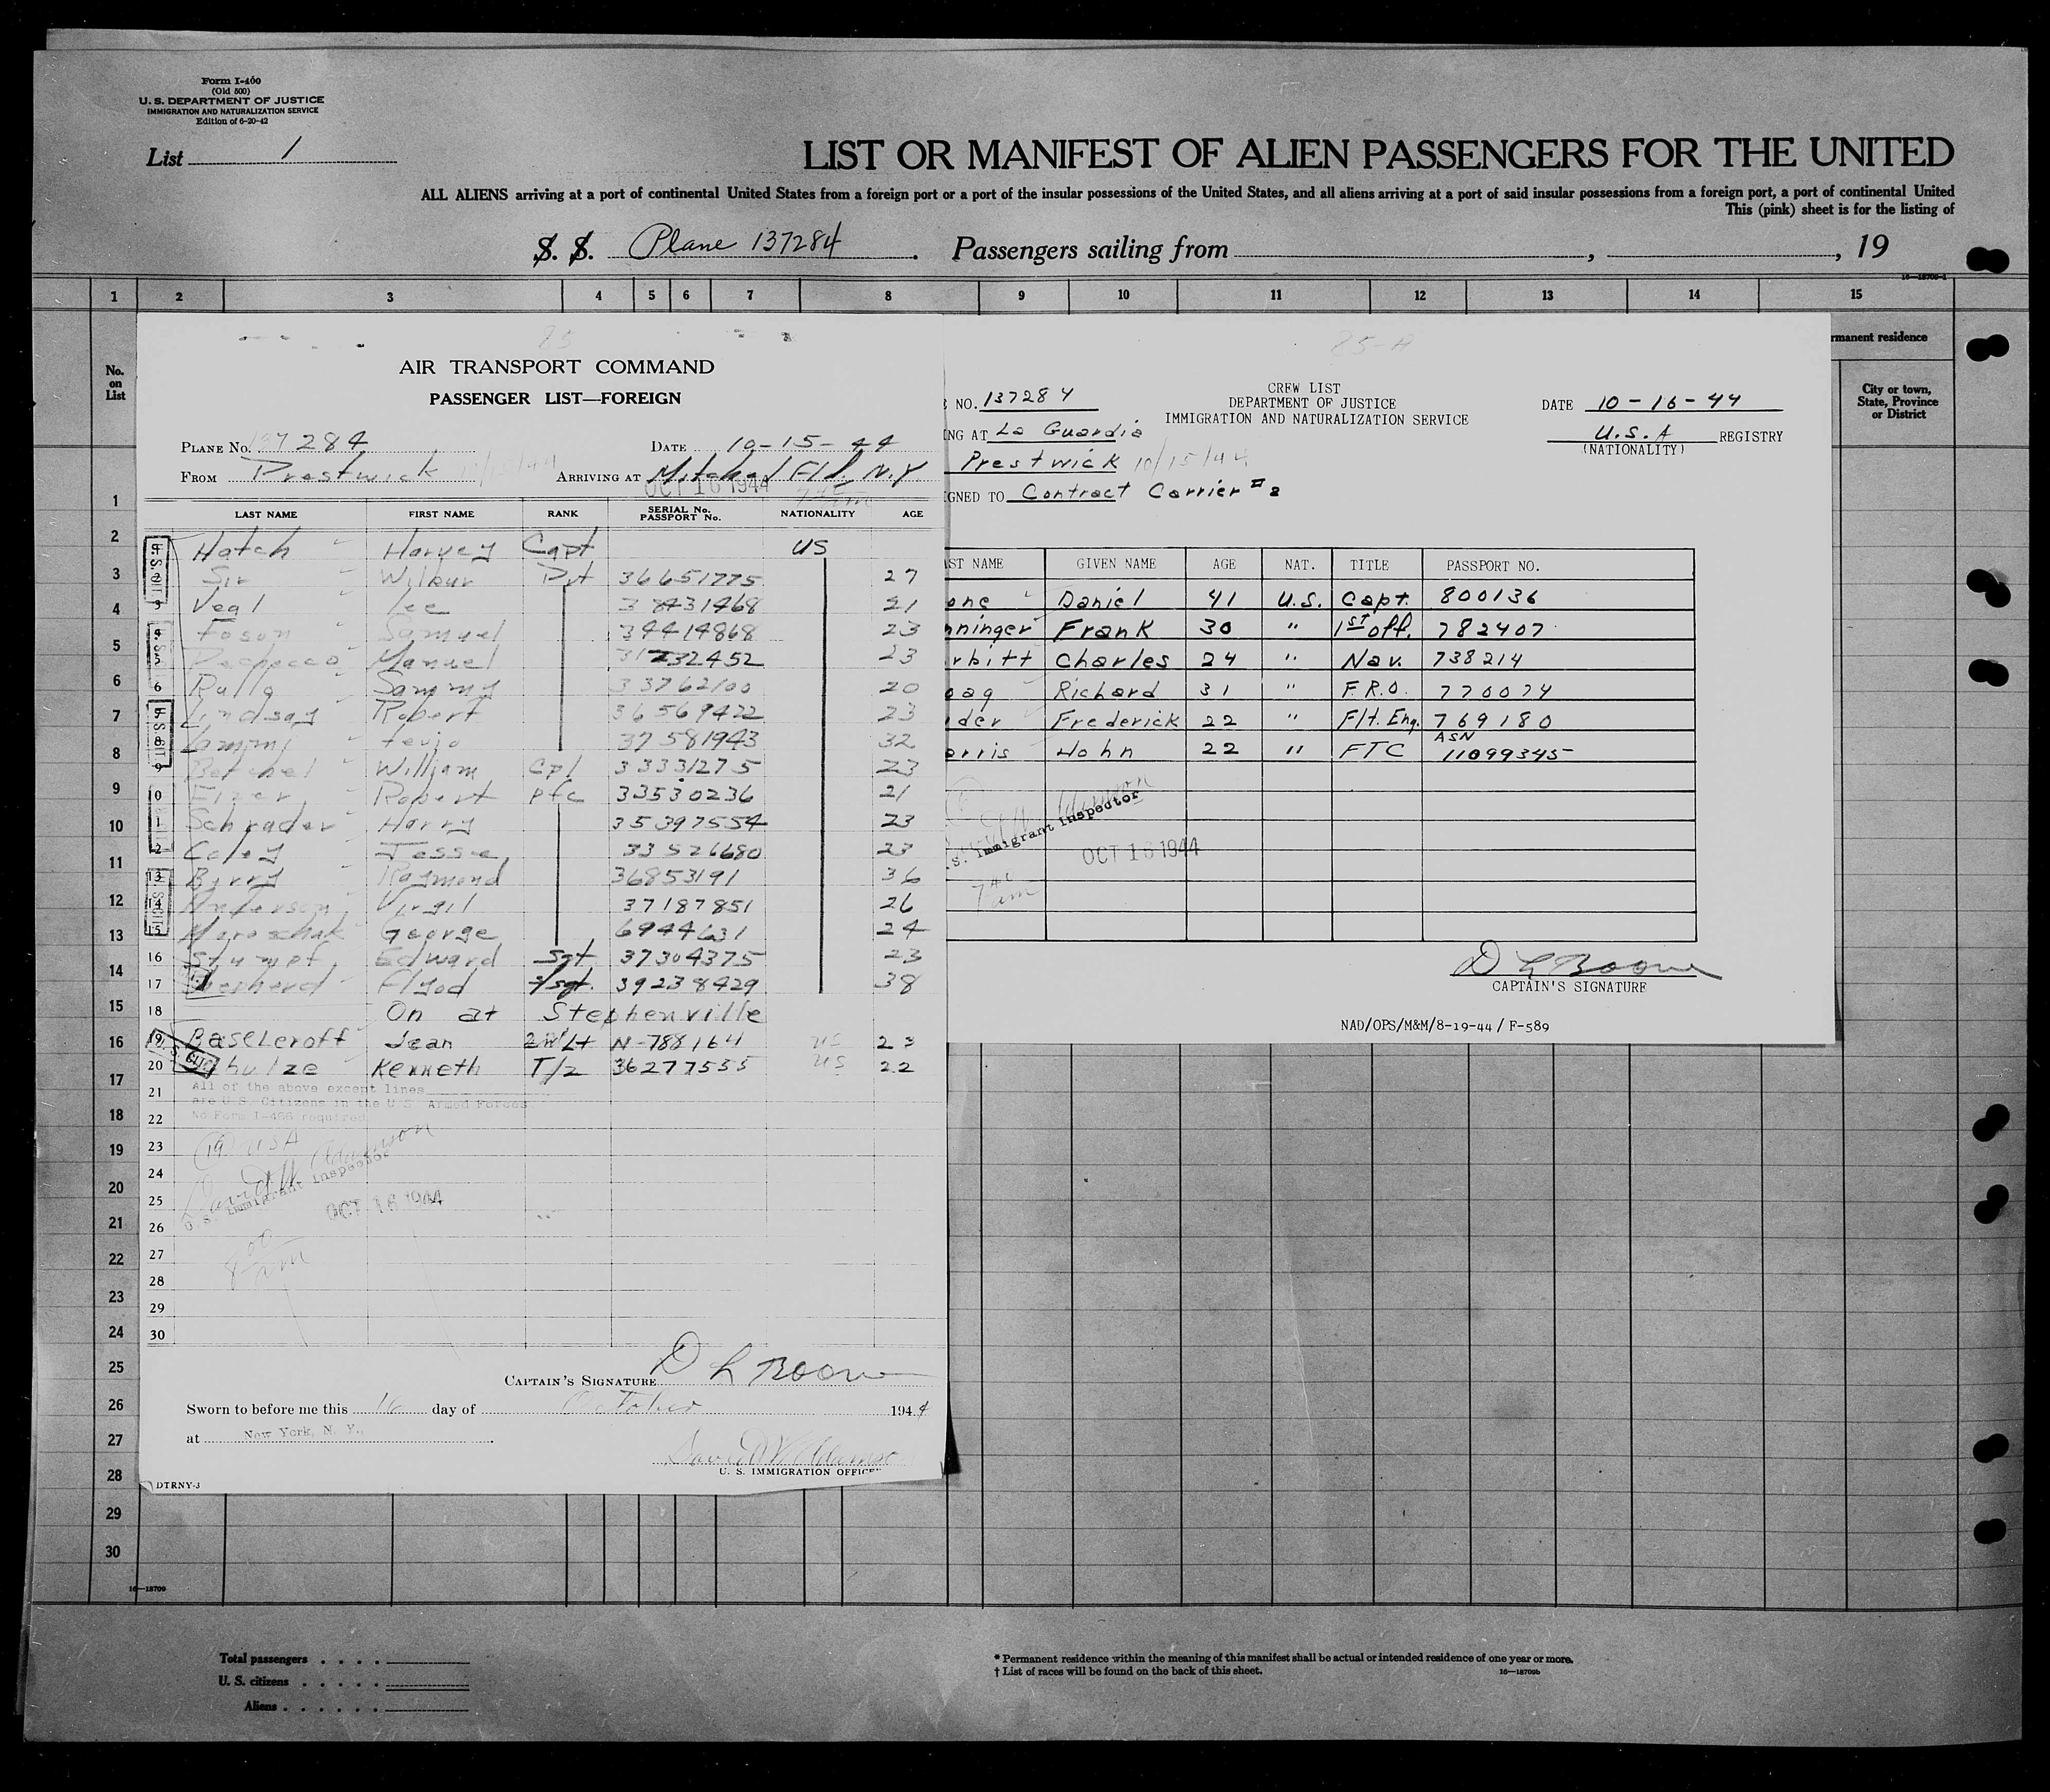 Form I-460
(Old 500)
U. S. DEPARTMENT OF JUSTICE
IMMIGRATION AND NATURALIZATION SERVICE
Edition of 6-20-42
List 1
LIST OR MANIFEST OF ALIEN PASSENGERS FOR THE UNITED
ALL ALIENS arriving at a port of continental United States from a foreign port or a port of the insular possessions of the United States, and all aliens arriving at a port of said insular possessions from a foreign port, a port of continental United
This (pink) sheet is for the listing of
S. S. Plane 137284. Passengers sailing from , , 19
1 2 3 4 5 6 7 8 9 10 11 12 13 14 15
No. on List
rmanent residence
City or town, State, Province or District
85
AIR TRANSPORT COMMAND
PASSENGER LIST—FOREIGN
PLANE No. 137284 DATE 10-15-44
FROM Prestwick 10/15/44 ARRIVING AT Mitchel Fld, N.Y.
OCT 16 1944
LAST NAME FIRST NAME RANK SERIAL No. PASSPORT No. NATIONALITY AGE
Hatch Harvey Capt US
Sir Wilbur Pvt 36651775 27
3 Veal Lee 38431468 21
Foson Samuel 34414868 23
Manuel 31232452 23
6 Rulla Sammy 33762100 20
Lindsay Robert 36569422 23
8 37581943 32
9 William Cpl 33331275 23
10 Robert Pfc 33530236 21
Schrader Harry 35397554 23
Coley Jesse 33526680 23
13 Raymond 36853191 36
14 Anderson Virgil 37187851 26
15 George 6944631 24
16 Stumpf Edward Sgt 37304375 23
17 Sheperd Flyod 39238429 38
18 On at Stephenville
19 Jean 2nd Lt N-788164 US 23
20 Schulze Kenneth T/2 36277555 US 22
21 All of the above except lines
are U.S. Citizens in the U.S. Armed Forces.
22 No Form I-466 required
23 (19) USA
24 David W Adamson
25 U. S. Immigrant Inspector OCT 16 1944
26
27 8 00 am
28
29
30
CAPTAIN'S SIGNATURE D L Boone
Sworn to before me this 16 day of October 1944
at New York, N. Y.,
David W. Adamson
U. S. IMMIGRATION OFFICER
DTRNY-3
85-A
CREW LIST
DEPARTMENT OF JUSTICE
IMMIGRATION AND NATURALIZATION SERVICE
NO. 137284 DATE 10-16-44
NG AT La Guardia U.S.A REGISTRY
(NATIONALITY)
Prestwick 10/15/44
GNED TO Contract Carrier #2
ST NAME GIVEN NAME AGE NAT. TITLE PASSPORT NO.
one Daniel 41 U.S. Capt. 800136
nninger Frank 30 " 1st off. 782407
rbitt Charles 24 " Nav. 738214
oag Richard 31 " F.R.O. 770074
der Frederick 22 " Flt. Eng. 769180
orris John 22 " FTC ASN 11099345
(6) Adamson
S. Immigrant Inspector
OCT 16 1944
7 40 am
D L Boone
CAPTAIN'S SIGNATURE
NAD/OPS/M&M/8-19-44/F-589
1
2
3
4
5
6
7
8
9
10
11
12
13
14
15
16
17
18
19
20
21
22
23
24
25
26
27
28
29
30
16—18709
Total passengers . . . .
U. S. citizens . . . . .
Aliens . . . . . .
* Permanent residence within the meaning of this manifest shall be actual or intended residence of one year or more.
† List of races will be found on the back of this sheet.
16—18709b